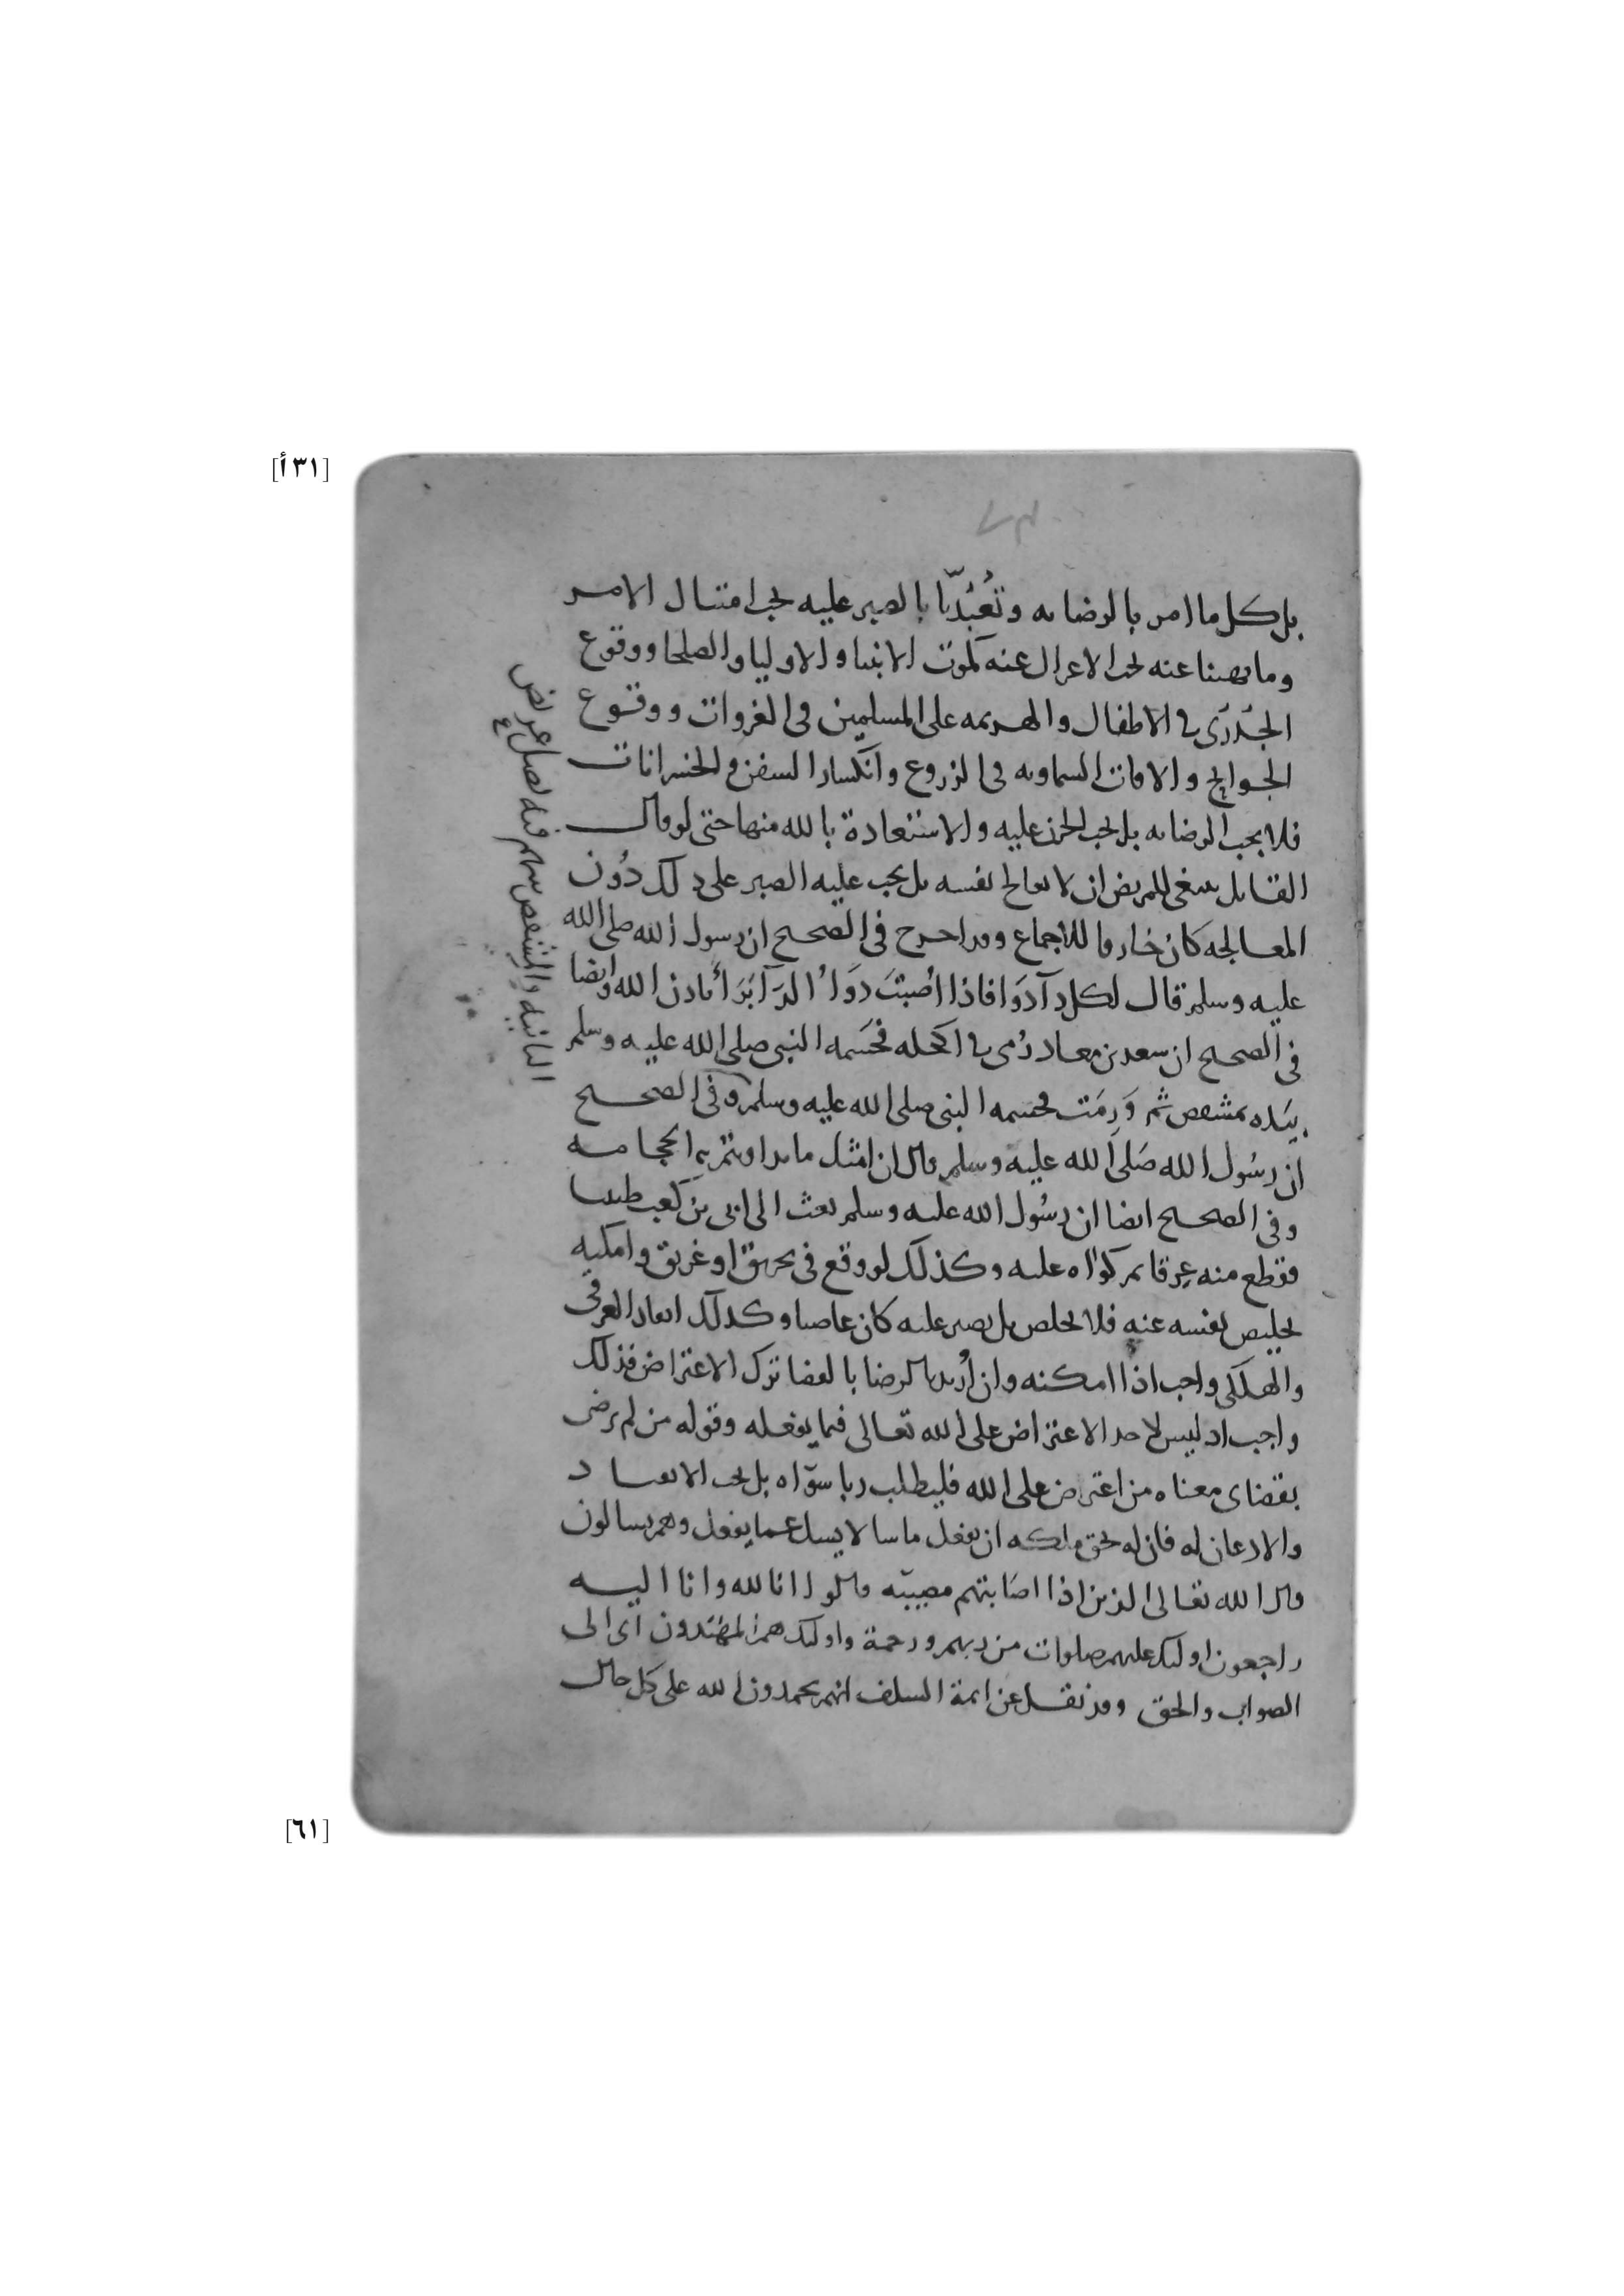 [٣١أ]
بل كل ما امر بالرضا به وتُعُبّدنا بالصبر عليه يجب امتثال الامر
وما نهينا عنه يجب الاعزال عنه كموت الانبيا والاوليا والصلحا ووقوع
الجدري في الاطفال والهزيمه على المسلمين في الغزوات ووقوع
الجوايح والافات السماويه في الزروع وانكسار السفن والخسرانات
فلا يجب الرضا به بل يجب الحزن عليه والاستعاذة بالله منها حتى لو قال
القايل ينبغي للمريض ان لا يعالج نفسه بل يجب عليه الصبر على ذلك دُون
المعالجه كان خارقا للاجماع وقد اخرج في الصحيح ان رسول الله صلى الله
عليه وسلم قال لكل دآ دَوَا فاذا اُصبتَ دَوَاُ الدآ بَرَأ باذن الله وايضا
في الصحيح ان سعد بن معاذ رُمي في اكحله فحَسَمه النبي صلى الله عليه وسلم
بيَده بمشقص ثم وَرِمَت فحسمه النبي صلى الله عليه وسلم وفي الصحيح
ان رسُول الله صَلى الله عليه وسلم قال ان امثل ما تداويتم به الحجامه
وفي الصحيح ايضا ان رسُول الله عليه وسلم بعث الى ابي بن كعب طبيبا
فقطع منه عِرقا ثم كواه عليه وكذلك لو وقع في حريق او غريق وامكنه
تخليص نفسه عنه فلا يخلص بل يصبر عليه كان عاصيا وكذلك انقاذ الغرقى
والهلكى واجب اذا امكنه وان اُريد بالرضا بالقضا ترك الاعتراض فذلك
واجب اذ ليس لاحد الاعتراض على الله تعالى فيما يفعله وقوله من لم يرض
بقضاى معناه من اعترض على الله فليطلب ربا سوَاه بل يجب الانقياد
والاذعان له فان له بحق ملكه ان يفعل ما يشا لا يسل عما يفعل وهم يسالون
قال الله تعالى الذين اذا اصَابتهم مصيبَه قالوا انا لله وانا اليه
راجعون اوليك عليهم صلوات من ربهم ورحمة واوليك هم المهتدون اي الى
الصواب والحق وقد نقل عن ايمة السلف انهم يحمدون الله على كل حال
والمشقص سهم فيه نصل عريض
[٦١]